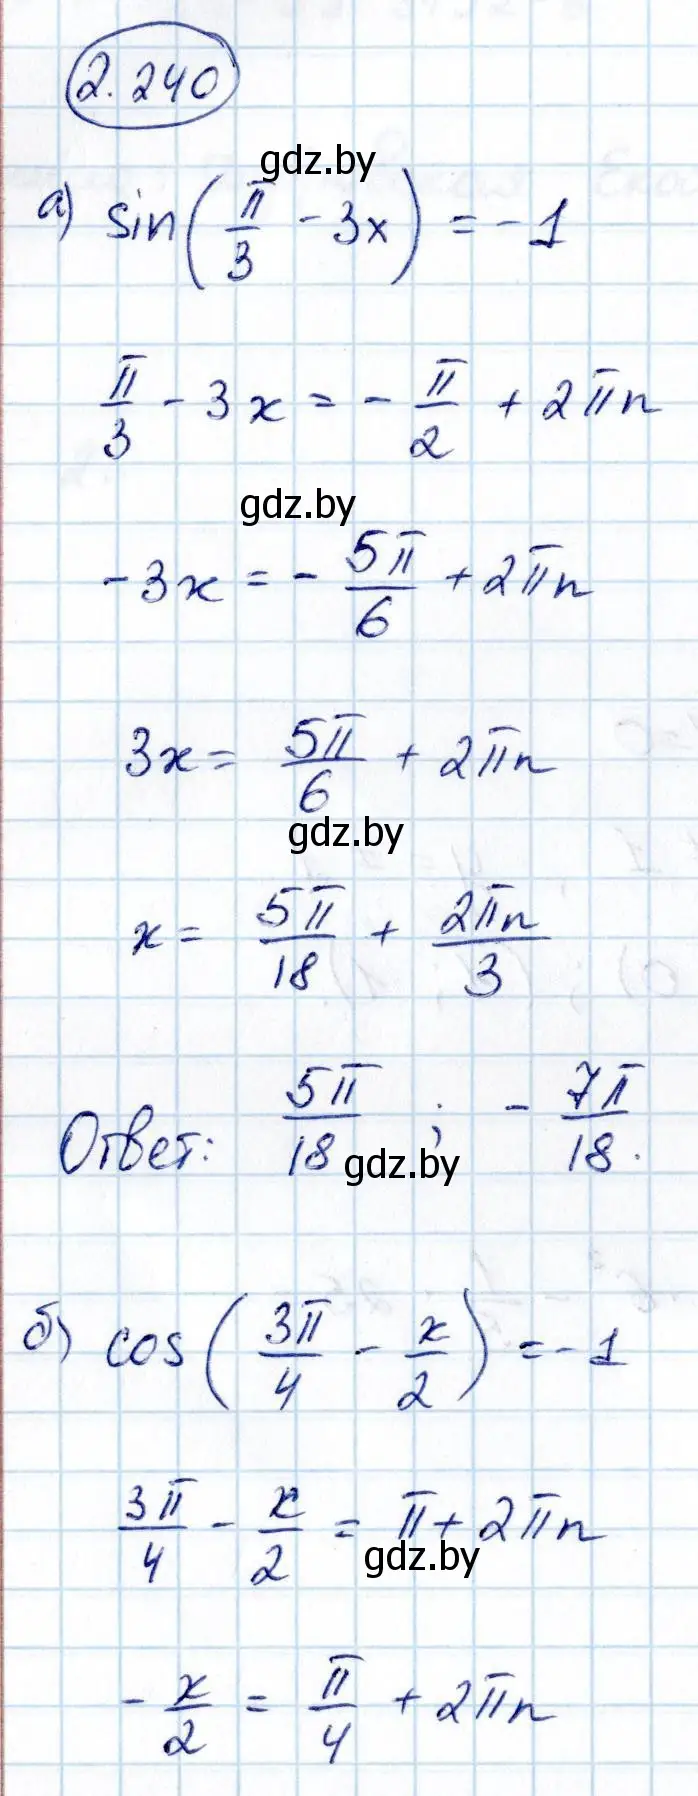 2.240
gdz.by
а) sin(π/3 - 3x) = -1
π/3 - 3x = -π/2 + 2πn
gdz.by
-3x = -5π/6 + 2πn
3x = 5π/6 + 2πn
gdz.by
x = 5π/18 + 2πn/3
Ответ: 5π/18 ; -7π/18.
gdz.by
б) cos(3π/4 - x/2) = -1
3π/4 - x/2 = π + 2πn
gdz.by
-x/2 = π/4 + 2πn